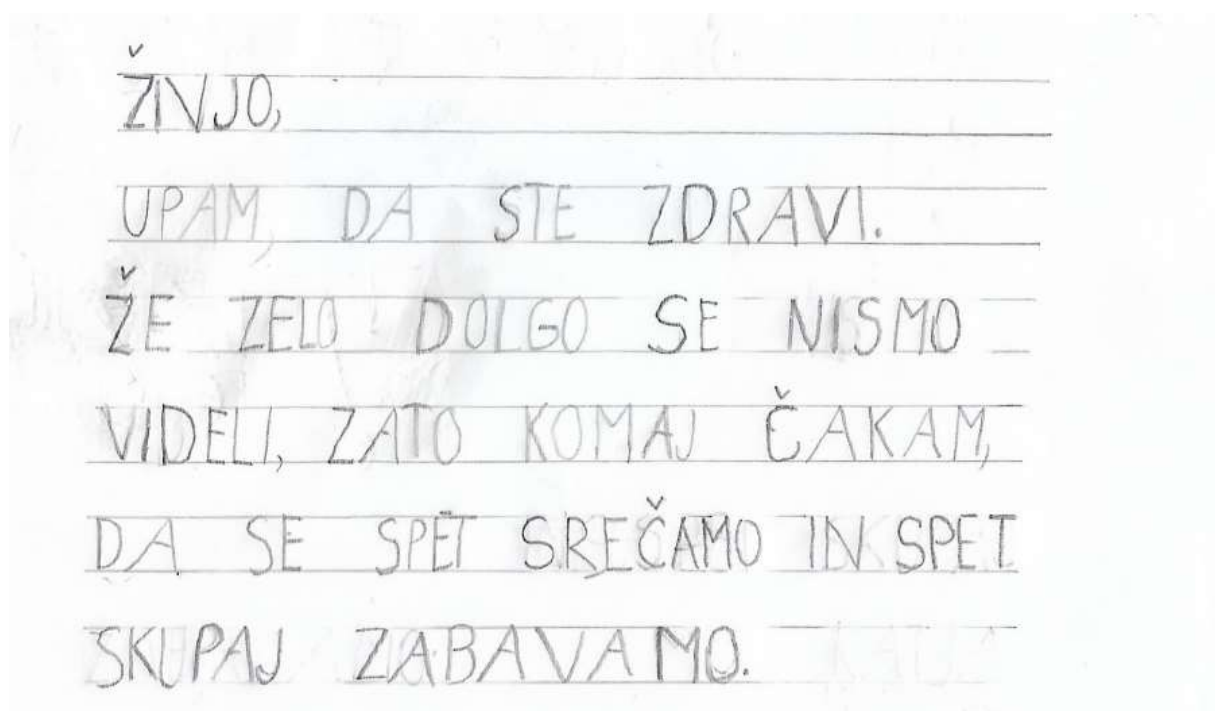 ŽIVJO,
UPAM, DA STE ZDRAVI.
ŽE ZELO DOLGO SE NISMO
VIDELI, ZATO KOMAJ ČAKAM,
DA SE SPET SREČAMO IN SPET
SKUPAJ ZABAVAMO.